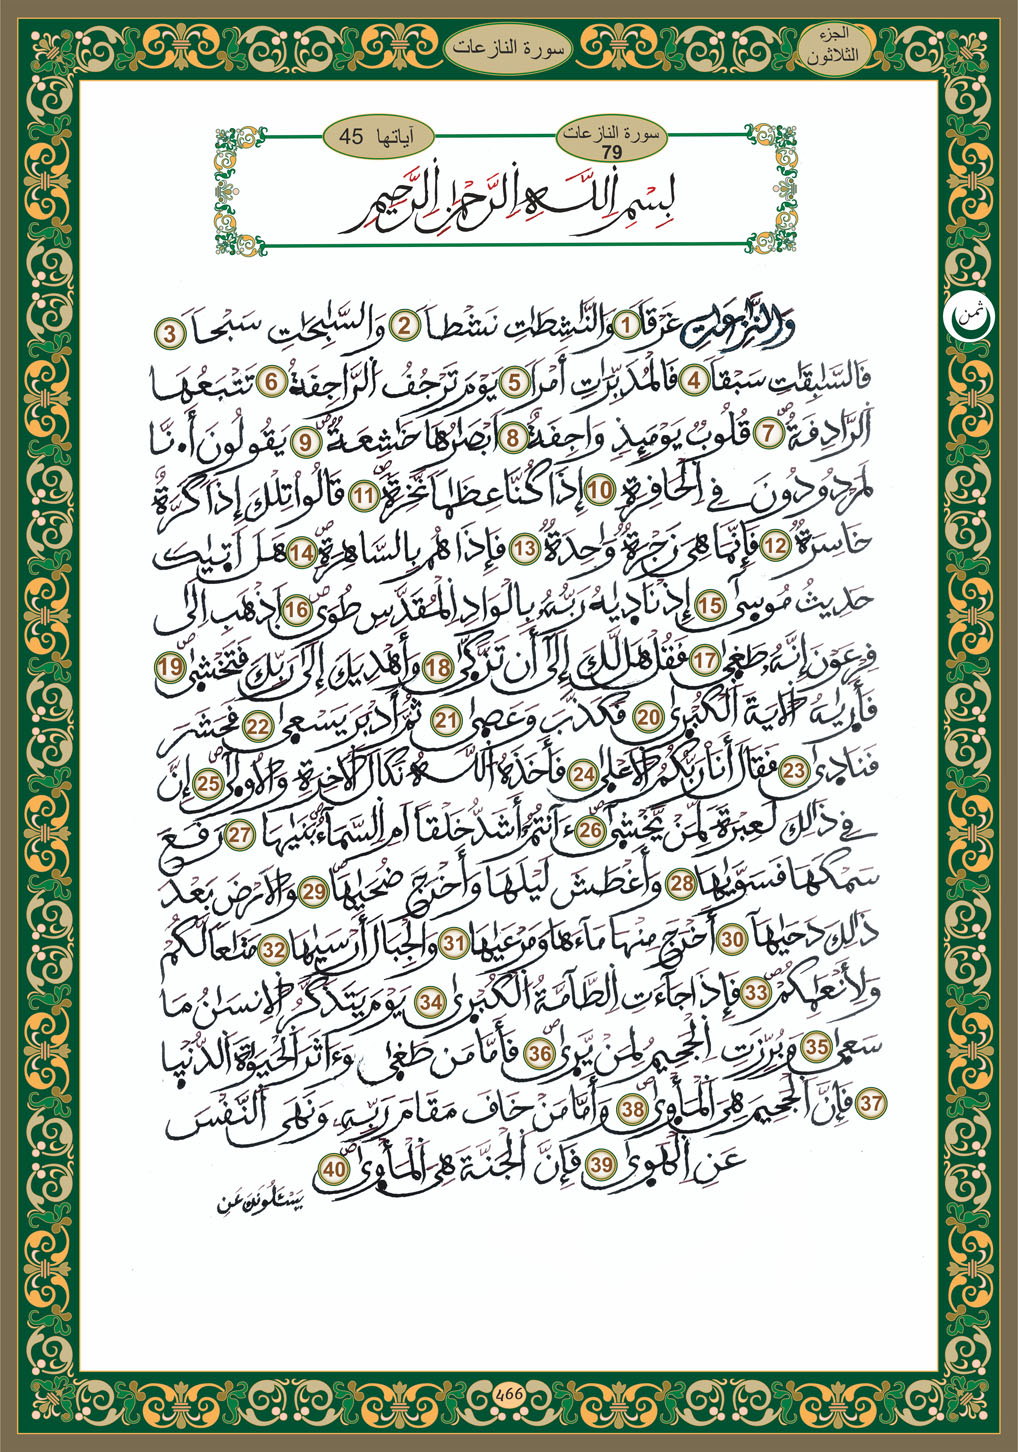 الجزء
الثلاثون
سورة النازعات
سورة النازعات
79
آياتها 45
بِسْمِ اِللَّهِ اِلرَّحْمَٰنِ اِلرَّحِيمِ
وَالنَّٰزِعَٰتِ غَرْقاٗ 1 وَالنَّٰشِطَٰتِ نَشْطاٗ 2 وَالسَّٰبِحَٰتِ سَبْحاٗ 3
ثمن
فَالسَّٰبِقَٰتِ سَبْقاٗ 4 فَالْمُدَبِّرَٰتِ أَمْراٗ 5 يَوْمَ تَرْجُفُ اُلرَّاجِفَةُ 6 تَتْبَعُهَا
اَلرَّادِفَةُۖ 7 قُلُوبٞ يَوْمَئِذٖ وَاجِفَةٌ 8 اَبْصَٰرُهَا خَٰشِعَةٞۖ 9 يَقُولُونَ أَ.نَّا
لَمَرْدُودُونَ فِے اِلْحَافِرَةِ 10 إِذَا كُنَّا عِظَٰماٗ نَّخِرَةٗۖ 11 قَالُواْ تِلْكَ إِذاٗ كَرَّةٌ
خَاسِرَةٞۖ 12 فَإِنَّمَا هِيَ زَجْرَةٞ وَٰحِدَةٞ 13 فَإِذَا هُم بِالسَّاهِرَةِۖ 14 هَلَ اَتٜيٰكَ
حَدِيثُ مُوسٜيٰٓ 15 إِذْ نَادٜيٰهُ رَبُّهُۥ بِالْوَادِ اِلْمُقَدَّسِ طُوٜي 16 اَذْهَبِ اِلَيٰ
فِرْعَوْنَ إِنَّهُۥ طَغٜيٰ 17 فَقُلْ هَل لَّكَ إِلَيٰٓ أَن تَزَّكّٜيٰ 18 وَأَهْدِيَكَ إِلَيٰ رَبِّكَ فَتَخْشٜيٰۖ 19
فَأَرٜيٰهُ اُلَايَةَ اَلْكُبْرٜيٰ 20 فَكَذَّبَ وَعَصٜيٰ 21 ثُمَّ أَدْبَرَ يَسْعٜيٰ 22 فَحَشَرَ
فَنَادٜيٰ 23 فَقَالَ أَنَا رَبُّكُمُ اُلَاعْلٜيٰ 24 فَأَخَذَهُ اُللَّهُ نَكَالَ اَلَاخِرَةِ وَالُاولٜيٰٓۖ 25 إِنَّ
فِے ذَٰلِكَ لَعِبْرَةٗ لِّمَنْ يَّخْشٜيٰٓۖ 26 ءَآنتُمُۥٓ أَشَدُّ خَلْقاً اَمِ اِلسَّمَآءُۖ بَنٜيٰهَا 27 رَفَعَ
سَمْكَهَا فَسَوّٜيٰهَا 28 وَأَغْطَشَ لَيْلَهَا وَأَخْرَجَ ضُحٜيٰهَاۖ 29 وَالَارْضَ بَعْدَ
ذَٰلِكَ دَحٜيٰهَآ 30 أَخْرَجَ مِنْهَا مَآءَهَا وَمَرْعٜيٰهَا 31 وَالْجِبَالَ أَرْسٜيٰهَا 32 مَتَٰعاٗ لَّكُمْ
وَلِأَنْعَٰمِكُمْۖ 33 فَإِذَا جَآءَتِ اِلطَّآمَّةُ اُلْكُبْرٜيٰ 34 يَوْمَ يَتَذَكَّرُ اُلِانسَٰنُ مَا
سَعٜيٰ 35 وَبُرِّزَتِ اِلْجَحِيمُ لِمَنْ يَّرٜيٰۖ 36 فَأَمَّا مَن طَغٜيٰ وَءَاثَرَ اَلْحَيَوٰةَ اَلدُّنْيٜا
37 فَإِنَّ اَلْجَحِيمَ هِيَ اَلْمَأْوٜيٰۖ 38 وَأَمَّا مَنْ خَافَ مَقَامَ رَبِّهِۦ وَنَهَي اَلنَّفْسَ
عَنِ اِلْهَوٜيٰ 39 فَإِنَّ اَلْجَنَّةَ هِيَ اَلْمَأْوٜيٰۖ 40
يَسْـَٔلُونَكَ عَنِ
466